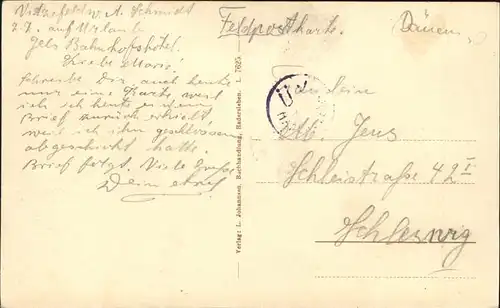 Vizefeldw. A. Schmidt
z. Z. auf Urlaub
Jels Bahnhofshotel.
Liebe Marie!
Schreibe Dir auch heute
nur eine Karte, weil
ich heute
Brief zurück erhielt,
weil ich ihn geschlossen
abgeschickt hatte.
Brief folgt. Viele Grüsse
Dein
Verlag: L. Johannsen, Buchhandlung, Hadersleben. L. 7625
Feldpostkarte.
Ü
Fräulein
M. Jens
Schleistraße 42 I
Schleswig